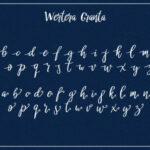 Westera Granta
b c d e f g h i j k l m
o p q r s t u v w x y z
a b c d e f g h i j k l m
n o p q r s t u v w x y z